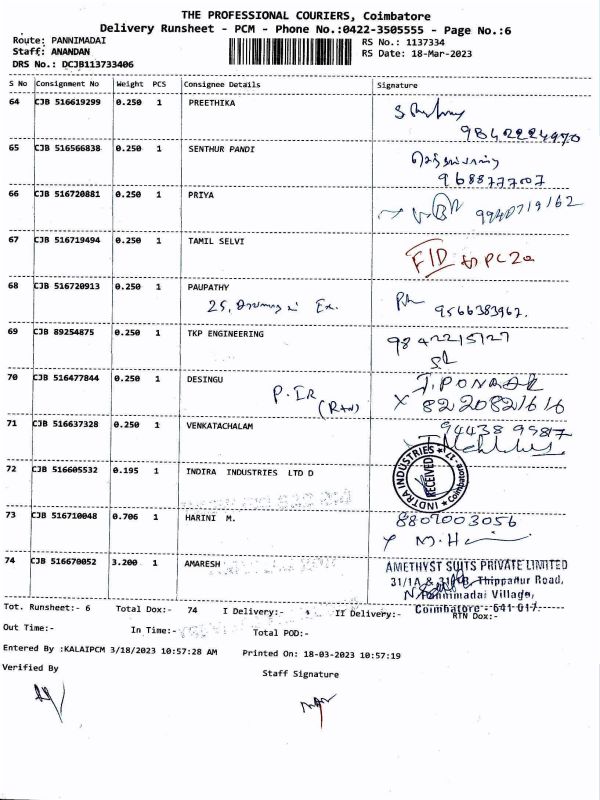 THE PROFESSIONAL COURIERS, Coimbatore
Delivery Runsheet - PCM - Phone No.:0422-3505555 - Page No.:6
Route: PANNIMADAI
RS No.: 1137334
Staff: ANANDAN
RS Date: 18-Mar-2023
DRS No.: DCJB113733406
S No Consignment No Weight PCS Consignee Details Signature
64 CJB 516619299 0.250 1 PREETHIKA
9842224970
65 CJB 516566838 0.250 1 SENTHUR PANDI
9688777707
66 CJB 516720881 0.250 1 PRIYA
9940719162
67 CJB 516719494 0.250 1 TAMIL SELVI
68 CJB 516720913 0.250 1 PAUPATHY
25, Ex. 9566383967.
69 CJB 89254875 0.250 1 TKP ENGINEERING
9842215727
70 CJB 516477844 0.250 1 DESINGU
P. IR
X 8220821616
71 CJB 516637328 0.250 1 VENKATACHALAM
94438 99817
72 CJB 516605532 0.195 1 INDIRA INDUSTRIES LTD D
INDTRA INDUSTRIES Coimbatore-17
RECEIVED
73 CJB 516710048 0.706 1 HARINI M.
8807003056
74 CJB 516670052 3.200 1 AMARESH
AMETHYST SUITS PRIVATE LIMITED
31/1A & Thippanur Road,
Pannimadai Village,
Coimbatore - 641 017.
Tot. Runsheet:- 6 Total Dox:- 74 I Delivery:- II Delivery:- RTN Dox:-
Out Time:- In Time:- Total POD:-
Entered By :KALAIPCM 3/18/2023 10:57:28 AM Printed On: 18-03-2023 10:57:19
Verified By
Staff Signature